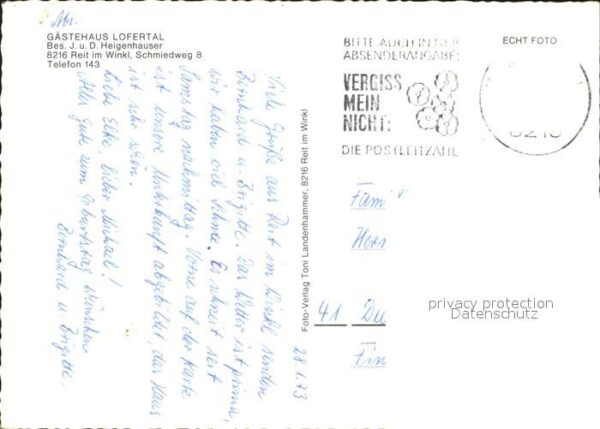 Abs.
GÄSTEHAUS LOFERTAL
Bes. J. u. D. Heigenhauser
8216 Reit im Winkl, Schmiedweg 8
Telefon 143
BITTE AUCH IN DER
ABSENDERANGABE:
VERGISS
MEIN
NICHT:
DIE POSTLEITZAHL
ECHT FOTO
8216
28.1.73
Viele Grüße aus Reit im Winkl senden
Bernhard u. Brigitte. Das Wetter ist prima,
wir haben viel Schnee. Es schneit seit
Samstag nachmittag. Vorne auf der Karte
ist unsere Unterkunft abgebildet, das Haus
ist sehr schön.
Liebe Elke, lieber Michael!
Alles Gute zum Geburtstag wünschen
Bernhard u. Brigitte.
Foto-Verlag Toni Landenhammer, 8216 Reit im Winkl
Fami
Herr
41 Du
Fin
privacy protection
Datenschutz